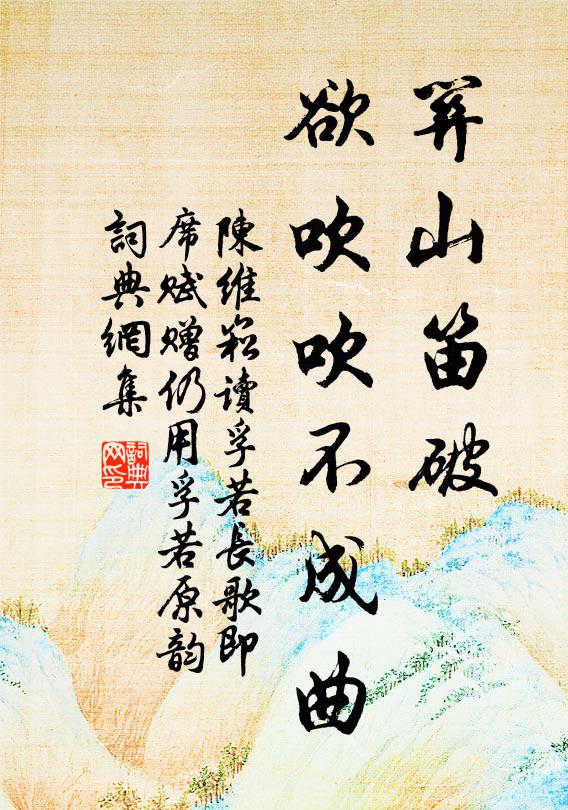 關山笛破
欲吹吹不成曲
陳維崧讀孚若長歌即
席賦贈仍用孚若原韻
詞典網集
詞典
网印